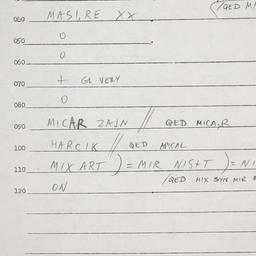 (/QED M
040 MASI, RE XX
050 O
O
060
070 + G1 VERY
080 O
090 MICAR ZAJN // QED MICA,R
100 HARCIK // QED APICAL
110 MIX ART ) = MIR NIS+T ) = NI
120 ON (/QED MIX SYN MIR